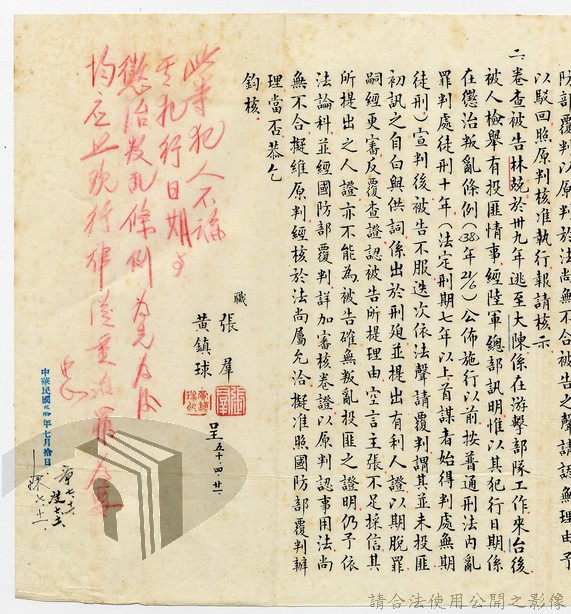 防部覆判以原判於法尚無不合被告之聲請認無理由予
以駁回照原判核准執行報請核示
二、卷查被告林競於卅九年逃至大陳係在游擊部隊工作來台後
被人檢舉有投匪情事經陸軍總部訊明惟以其犯行日期係
在懲治叛亂條例(38年21/6)公佈施行以前按普通刑法內亂
罪判處徒刑十年(法定刑期七年以上首謀者始得判處無期
徒刑)宣判後被告不服迭次依法聲請覆判謂其並未投匪
初訊之自白與供詞係出於刑廹並提出有利人證以期脫罪
嗣經更審反覆查證認被告所提理由空言主張不足採信其
所提出之人證亦不能為被告確無叛亂投匪之證明仍予依
法論科並經國防部覆判詳加審核卷證以原判認事用法尚
無不合擬維原判經核於法尚屬允洽擬准照國防部覆判辦
理當否恭乞
鈞核
職 張羣
黃鎮球 呈 五十四 廿一
此等犯人不論
其犯行日期于
懲治叛亂條例為先為後
均應照現行律從重治罪為要
中華民國 年七月拾日
請合法使用公開之影像